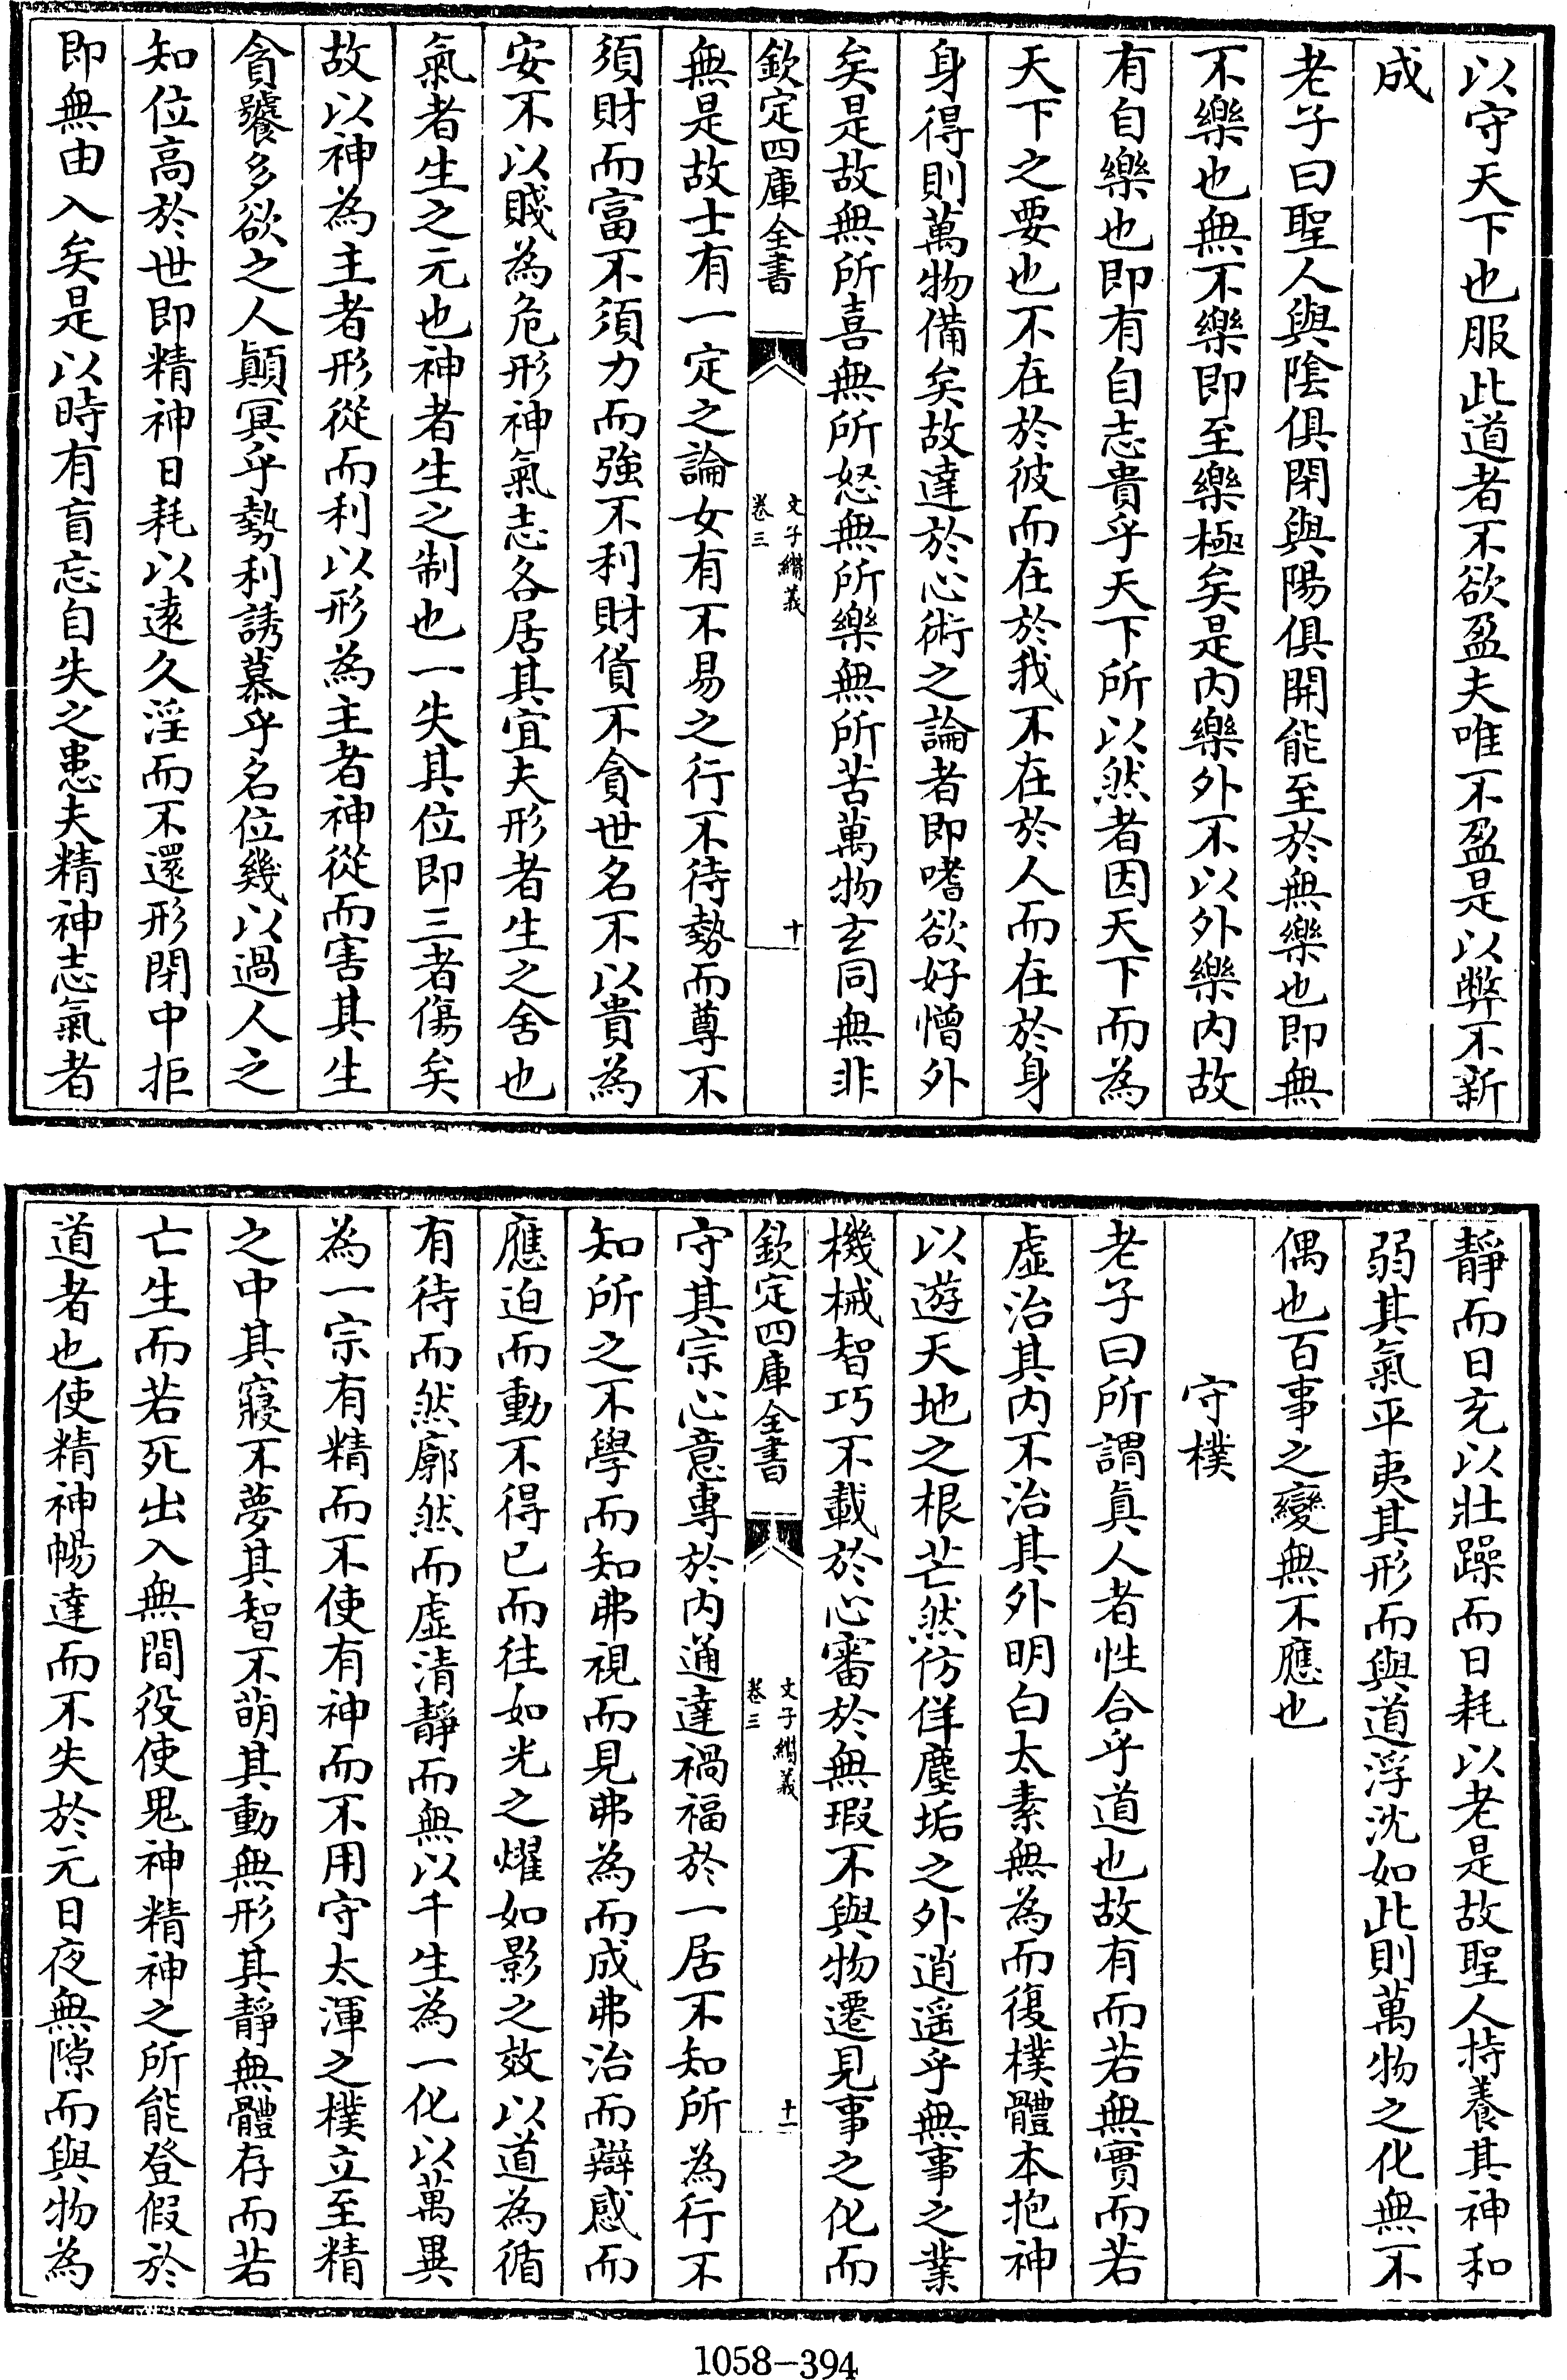 以守天下也服此道者不欲盈夫唯不盈是以弊不新
成
老子曰聖人與陰俱閉與陽俱開能至於無樂也即無
不樂也無不樂即至樂極矣是内樂外不以外樂内故
有自樂也即有自志貴乎天下所以然者因天下而為
天下之要也不在於彼而在於我不在於人而在於身
身得則萬物備矣故達於心術之論者即嗜欲好憎外
矣是故無所喜無所怒無所樂無所苦萬物玄同無非
欽定四庫全書
文子纘義
卷三
十
無是故士有一定之論女有不易之行不待勢而尊不
須財而富不須力而強不利財貨不貪世名不以貴為
安不以賤為危形神氣志各居其宜夫形者生之舍也
氣者生之元也神者生之制也一失其位即三者傷矣
故以神為主者形從而利以形為主者神從而害其生
貪饕多欲之人顛冥乎勢利誘慕乎名位幾以過人之
知位高於世即精神日耗以遠久淫而不還形閉中拒
即無由入矣是以時有盲忘自失之患夫精神志氣者
靜而日充以壯躁而日耗以老是故聖人持養其神和
弱其氣平夷其形而與道浮沈如此則萬物之化無不
偶也百事之變無不應也
守樸
老子曰所謂真人者性合乎道也故有而若無實而若
虛治其内不治其外明白太素無為而復樸體本抱神
以遊天地之根芒然仿佯塵垢之外逍遥乎無事之業
機械智巧不載於心審於無瑕不與物遷見事之化而
欽定四庫全書
文子纘義
卷三
十一
守其宗心意專於内通達禍福於一居不知所為行不
知所之不學而知弗視而見弗為而成弗治而辯感而
應迫而動不得已而往如光之燿如影之效以道為循
有待而然廓然而虛清靜而無以千生為一化以萬異
為一宗有精而不使有神而不用守太渾之樸立至精
之中其寢不夢其智不萌其動無形其靜無體存而若
亡生而若死出入無間役使鬼神精神之所能登假於
道者也使精神暢達而不失於元日夜無隙而與物為
1058-394